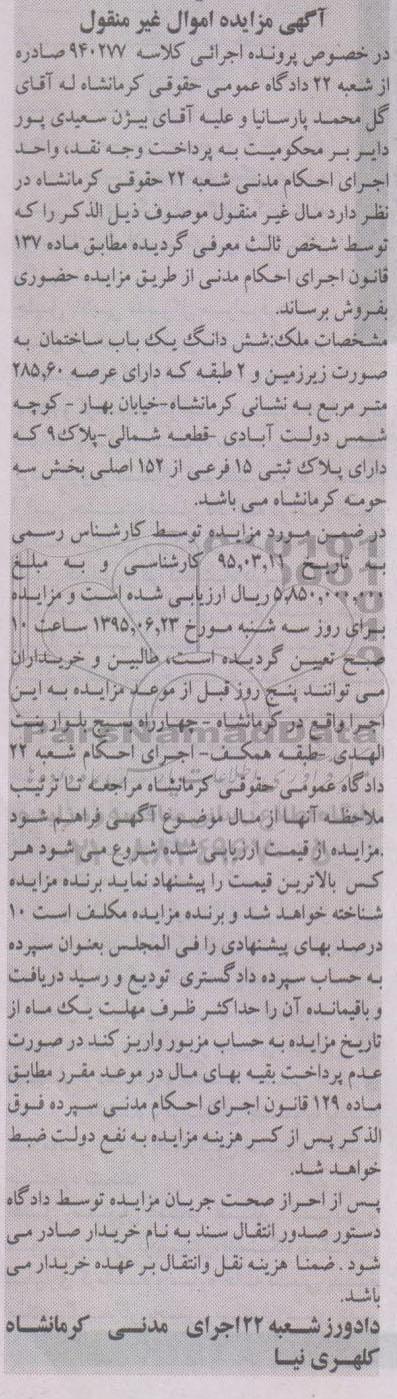 آگهی مزایده اموال غیر منقول
در خصوص پرونده اجرائی کلاسه ۹۴۰۲۷۷ صادره
از شعبه ۲۲ دادگاه عمومی حقوقی کرمانشاه له آقای
گل محمد پارسانیا و علیه آقای بیژن سعیدی پور
دایر بر محکومیت به پرداخت وجه نقد، واحد
اجرای احکام مدنی شعبه ۲۲ حقوقی کرمانشاه در
نظر دارد مال غیر منقول موصوف ذیل الذکر را که
توسط شخص ثالث معرفی گردیده مطابق ماده ۱۳۷
قانون اجرای احکام مدنی از طریق مزایده حضوری
بفروش برساند.
مشخصات ملک:شش دانگ یک باب ساختمان به
صورت زیرزمین و ۲ طبقه که دارای عرصه ۲۸۵,۶۰
متر مربع به نشانی کرمانشاه-خیابان بهار - کوچه
شمس دولت آبادی -قطعه شمالی-پلاک۹ که
دارای پلاک ثبتی ۱۵ فرعی از ۱۵۲ اصلی بخش سه
حومه کرمانشاه می باشد.
در ضمن مورد مزایده توسط کارشناس رسمی
به تاریخ ۹۵,۰۳,۱۶ کارشناسی و به مبلغ
۵,۸۵۰,۰۰۰,۰۰۰ ریال ارزیابی شده است و مزایده
برای روز سه شنبه مورخ ۱۳۹۵,۰۶,۲۳ ساعت ۱۰
صبح تعیین گردیده است، طالبین و خریداران
می توانند پنج روز قبل از موعد مزایده به این
اجرا واقع در کرمانشاه - چهارراه بسیج بلوار بنت
الهدی -طبقه همکف- اجرای احکام شعبه ۲۲
دادگاه عمومی حقوقی کرمانشاه مراجعه تا ترتیب
ملاحظه آنها از مال موضوع آگهی فراهم شود
.مزایده از قیمت ارزیابی شده شروع می شود هر
کس بالاترین قیمت را پیشنهاد نماید برنده مزایده
شناخته خواهد شد و برنده مزایده مکلف است ۱۰
درصد بهای پیشنهادی را فی المجلس بعنوان سپرده
به حساب سپرده دادگستری تودیع و رسید دریافت
و باقیمانده آن را حداکثر ظرف مهلت یک ماه از
تاریخ مزایده به حساب مزبور واریز کند در صورت
عدم پرداخت بقیه بهای مال در موعد مقرر مطابق
ماده ۱۲۹ قانون اجرای احکام مدنی سپرده فوق
الذکر پس از کسر هزینه مزایده به نفع دولت ضبط
خواهد شد.
پس از احراز صحت جریان مزایده توسط دادگاه
دستور صدور انتقال سند به نام خریدار صادر می
شود . ضمنا هزینه نقل وانتقال بر عهده خریدار می
باشد.
دادورز شعبه ۲۲اجرای مدنی کرمانشاه
کلهری نیا
ParsNamadData